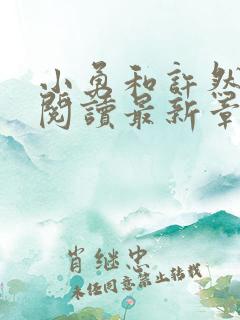 小勇和許然
閱讀最新章
肖继忠
未经同意禁止转载